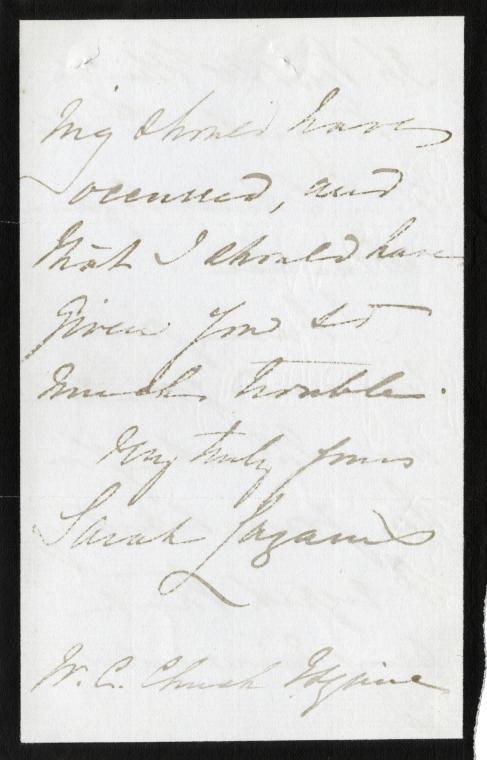 ing should have
occurred, and
that I should have
given you so
much trouble.
Very truly yours
Sarah Lazarus
W. C. Church Esquire